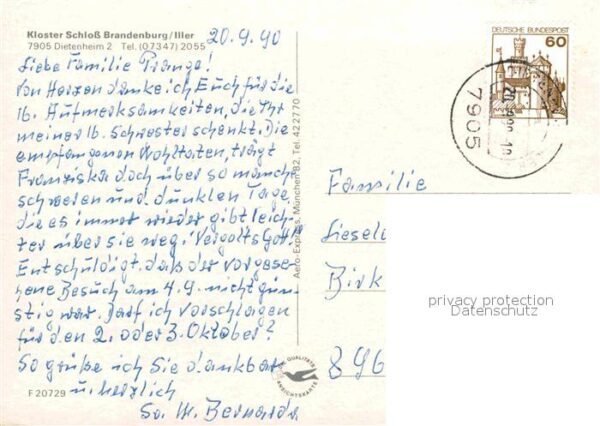 Kloster Schloß Brandenburg/Iller
7905 Dietenheim 2 Tel. (07347) 2055
20.9.90
Liebe Familie Prange!
Von Herzen danke ich Euch für die
lb. Aufmerksamkeiten, die Ihr
meiner lb. Schwester schenkt. Die
empfangenen Wohltaten, trägt
Franziska doch über so manche
schweren und dunklen Tage,
die es immer wieder gibt leich-
ter über sie weg. Vergelts Gott!
Entschuldigt, daß der vorgese-
hene Besuch am 4.9. nicht gün-
stig war. Darf ich vorschlagen
für den 2. oder 3. Oktober?
So grüße ich Sie dankbar
u. herzlich
Sr. M. Bernarda
F 20729
Aero-Express, München 82, Tel. 42 27 70
QUALITÄTS
ANSICHTSKARTE
DEUTSCHE BUNDESPOST
60
7905
Familie
Liesel
Birk
896
privacy protection
Datenschutz